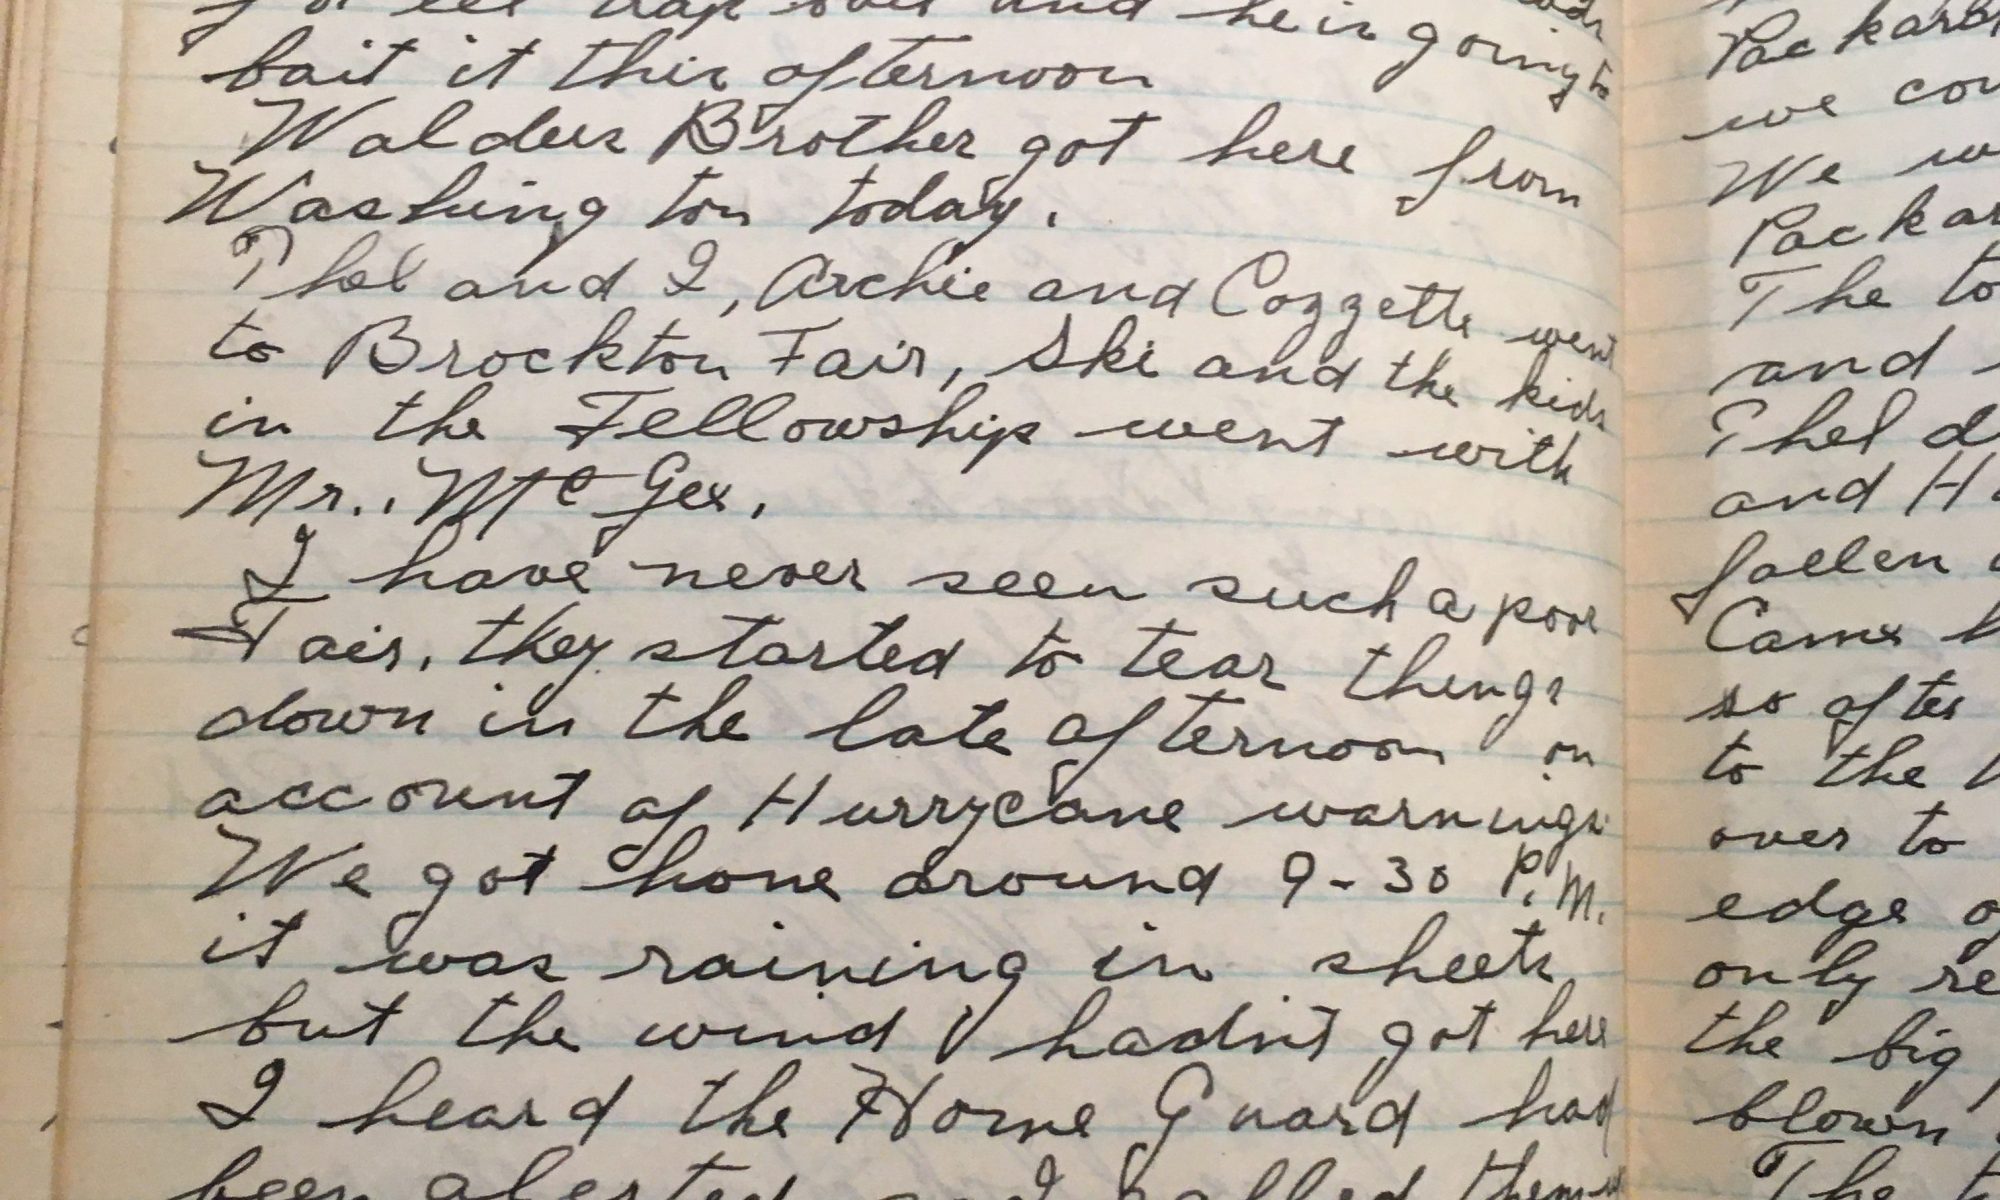 and he is going to
bait it this afternoon
Waldus Brother got here from
Washington today.
Thel and I, Archie and Cozzette went
to Brockton Fair, Ski and the kids
in the Fellowship went with
Mr. McGee.
I have never seen such a poor
Fair, they started to tear things
down in the late afternoon on
account of Hurrycane warnings
We got home around 9-30 P.M.
it was raining in sheets
but the wind hadn't got here
I heard the Home Guard had
been alerted and I called them
we
We
The to
and
Thel
and
fallen
Came
so after
to the
over to
edge
only
the big
blown
The